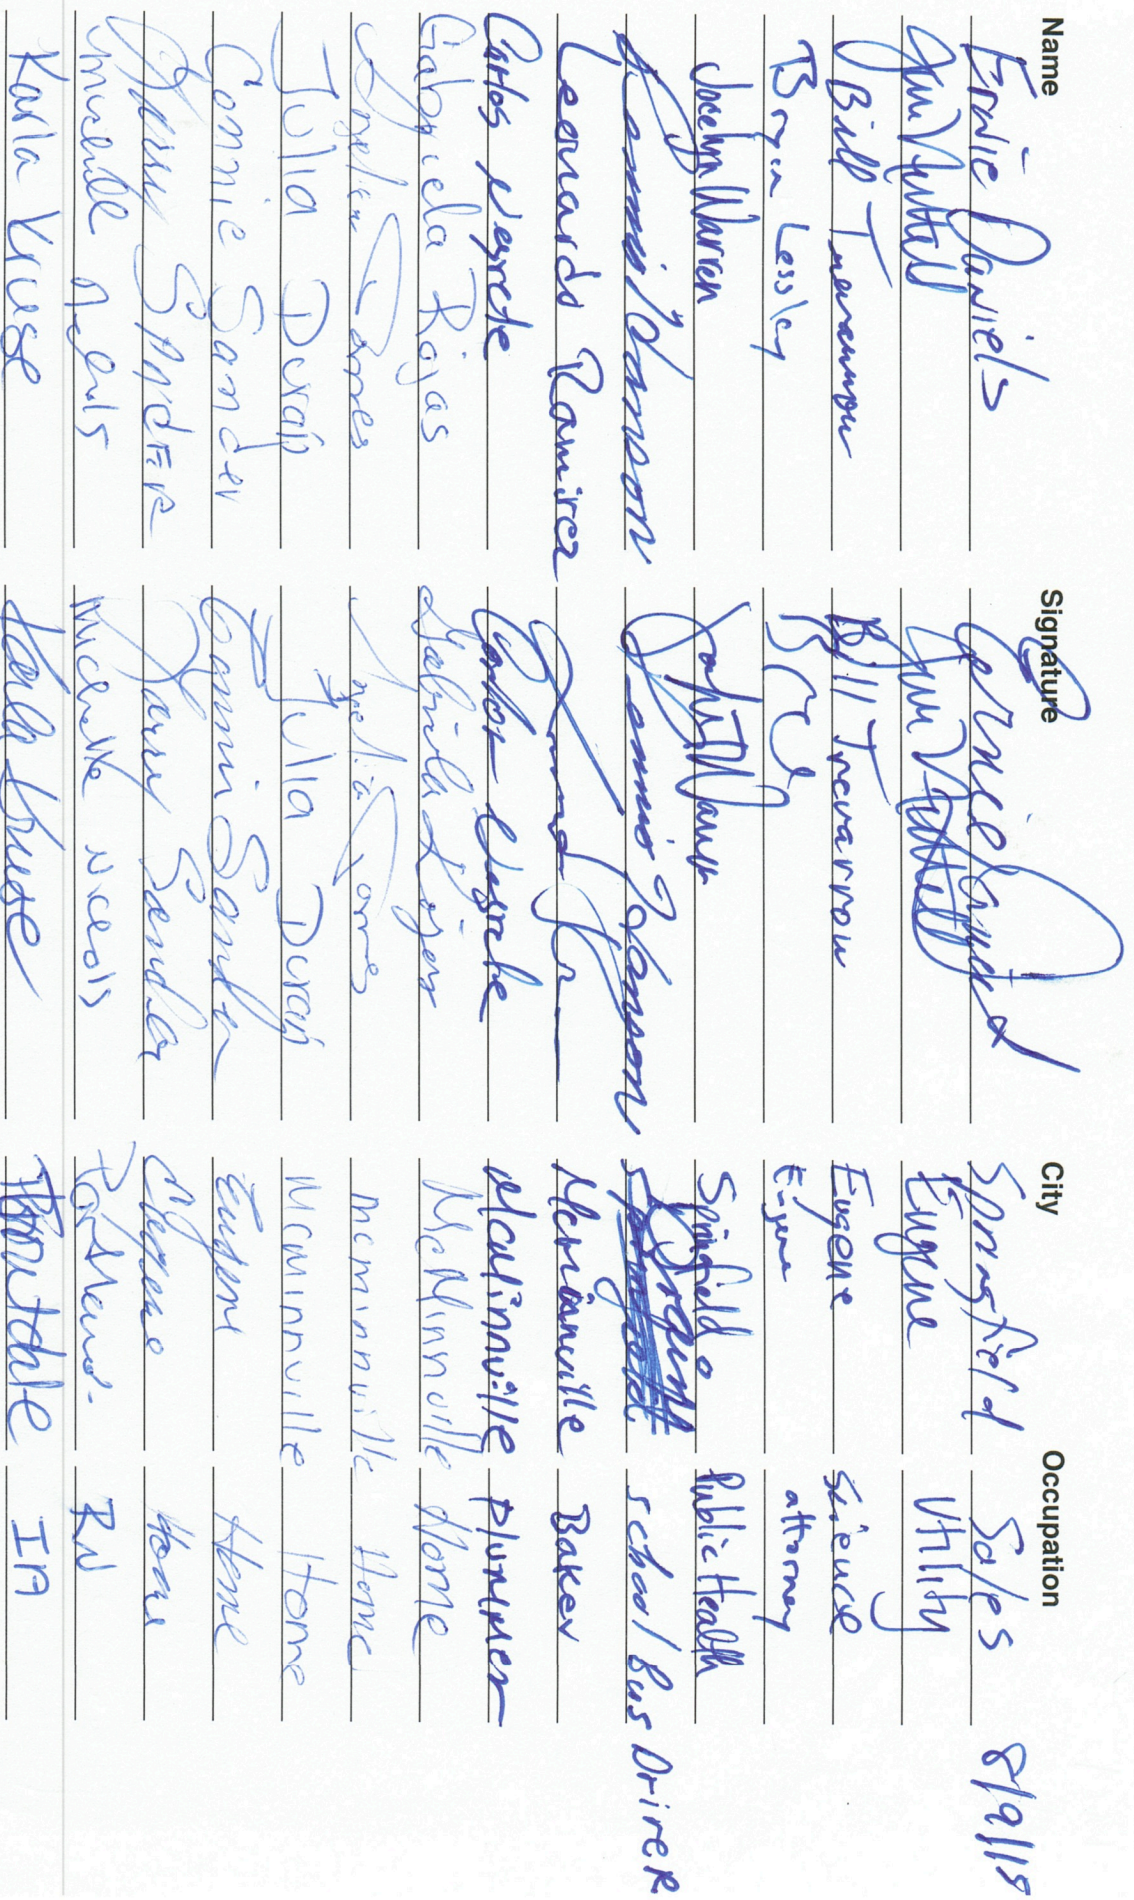 Name Signature City Occupation
Ernie Daniels Springfield Sales 8/9/18
Jim Nuttall Jim Nuttall Eugene Utility
Bill Trevarrow Bill Trevarrow Eugene Science
Bryan Lessley Eugene attorney
Jocelyn Warren Springfield Public Health
Hanson Hanson school Bus DriveR
Leonardo Ramirez McMinnville Baker
Carlos Negrete Carlos Negrete McMinnville Plummer
Gabriela Rojas Gabriela Rojas McMinnville Home
Angelica Torres Angelica Torres mcminnville Home
Julia Duran Julia Duran McMinnville Home
Connie Sander Connie Sander Eugene Home
SANdER Sander Eugene Home
michelle Nicols michelle Nicols Portland RN
Karla Kruse Karla Kruse Troutdale IA